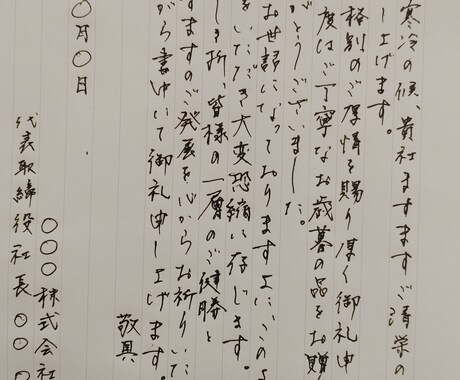 寒冷の候、貴社ますますご清栄の
し上げます。
格別のご厚情を賜り厚く御礼申
度はご丁寧なお歳暮の品をお贈
がとうございました。
お世話になっております上に、このよ
をいただき大変恐縮に存じます。
しき折、皆様の一層のご健勝と
すますのご発展を心からお祈りいた
がら書中にて御礼申し上げます。
敬具
〇月〇日
〇〇〇株式会社
代表取締役社長 〇〇 〇